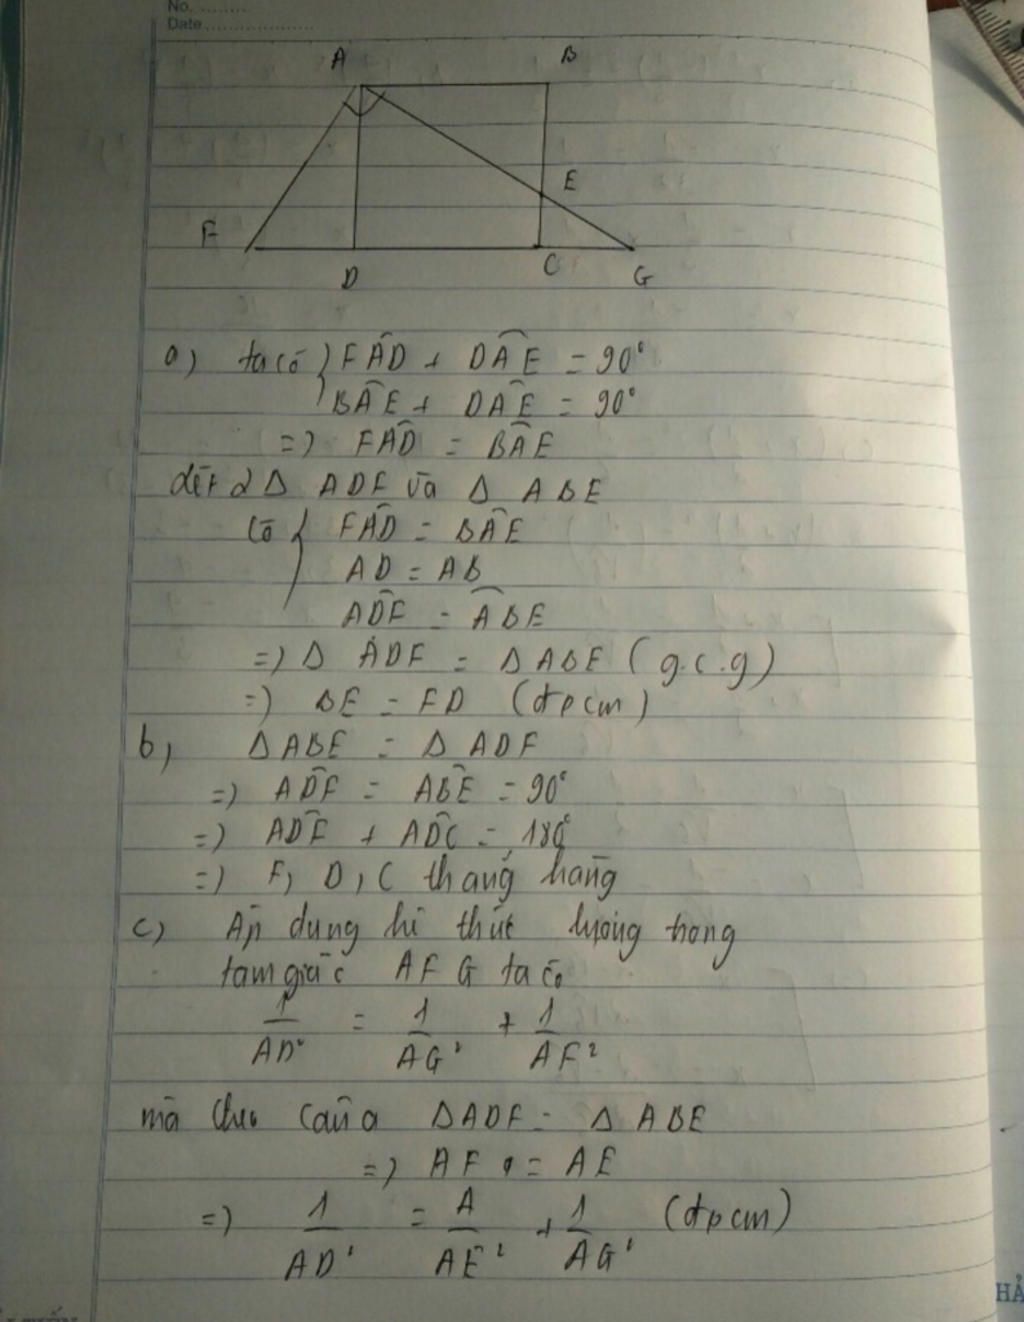 No. ........
Date ...................
A B
E
F
D C G
a) ta có } FÂD + DÂE = 90°
BÂE + DÂE = 90°
=) FÂD = BÂE
xét 2 Δ ADF và Δ ABE
có { FÂD = BÂE
AD = AB
AD̂F = AB̂E
=) Δ ADF = Δ ABE ( g.c.g )
=) BE = FD (đpcm)
b) Δ ABE = Δ ADF
=) AD̂F = AB̂E = 90°
=) AD̂F + AD̂C = 180°
=) F, D, C thẳng hàng
c) Áp dụng hệ thức lượng trong
tam giác AFG ta có
1/AD² = 1/AG² + 1/AF²
mà theo câu a Δ ADF = Δ ABE
=) AF = AE
=) 1/AD² = 1/AE² + 1/AG² (đpcm)
HẢ